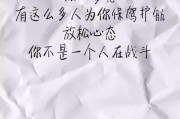 有这么多人为你保驾护航
放松心态
你不是一个人在战斗